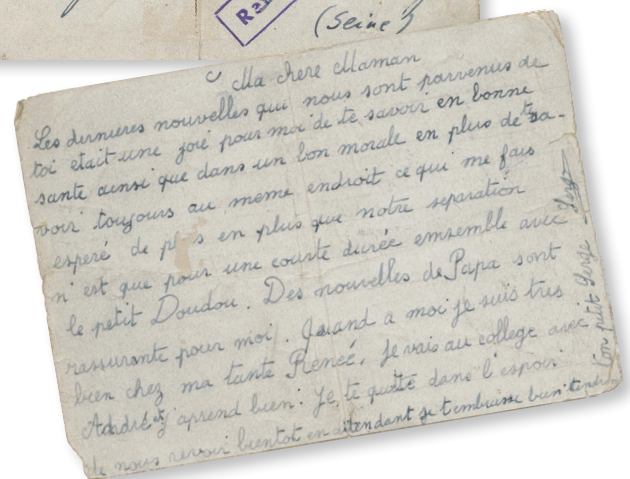 (Seine)
Ma chere Maman
Les dernieres nouvelles qui nous sont parvenus de
toi etait une joie pour moi de te savoir en bonne
santé ainsi que dans un bon morale en plus de te sa-
voir toujours au meme endroit ce qui me fais
esperé de pl s en plus que notre separation
n'est que pour une courte durée emsemble avec
le petit Doudou. Des nouvelles de Papa sont
rassurante pour moi. Quand a moi je suis tres
bien chez ma tante Reneé. Je vais au college avec
André et j'aprend bien. Je te quitte dans l'espoir
de nous revoir bientot en attendant je t'embrasse bien tendre
Ton petit Serge